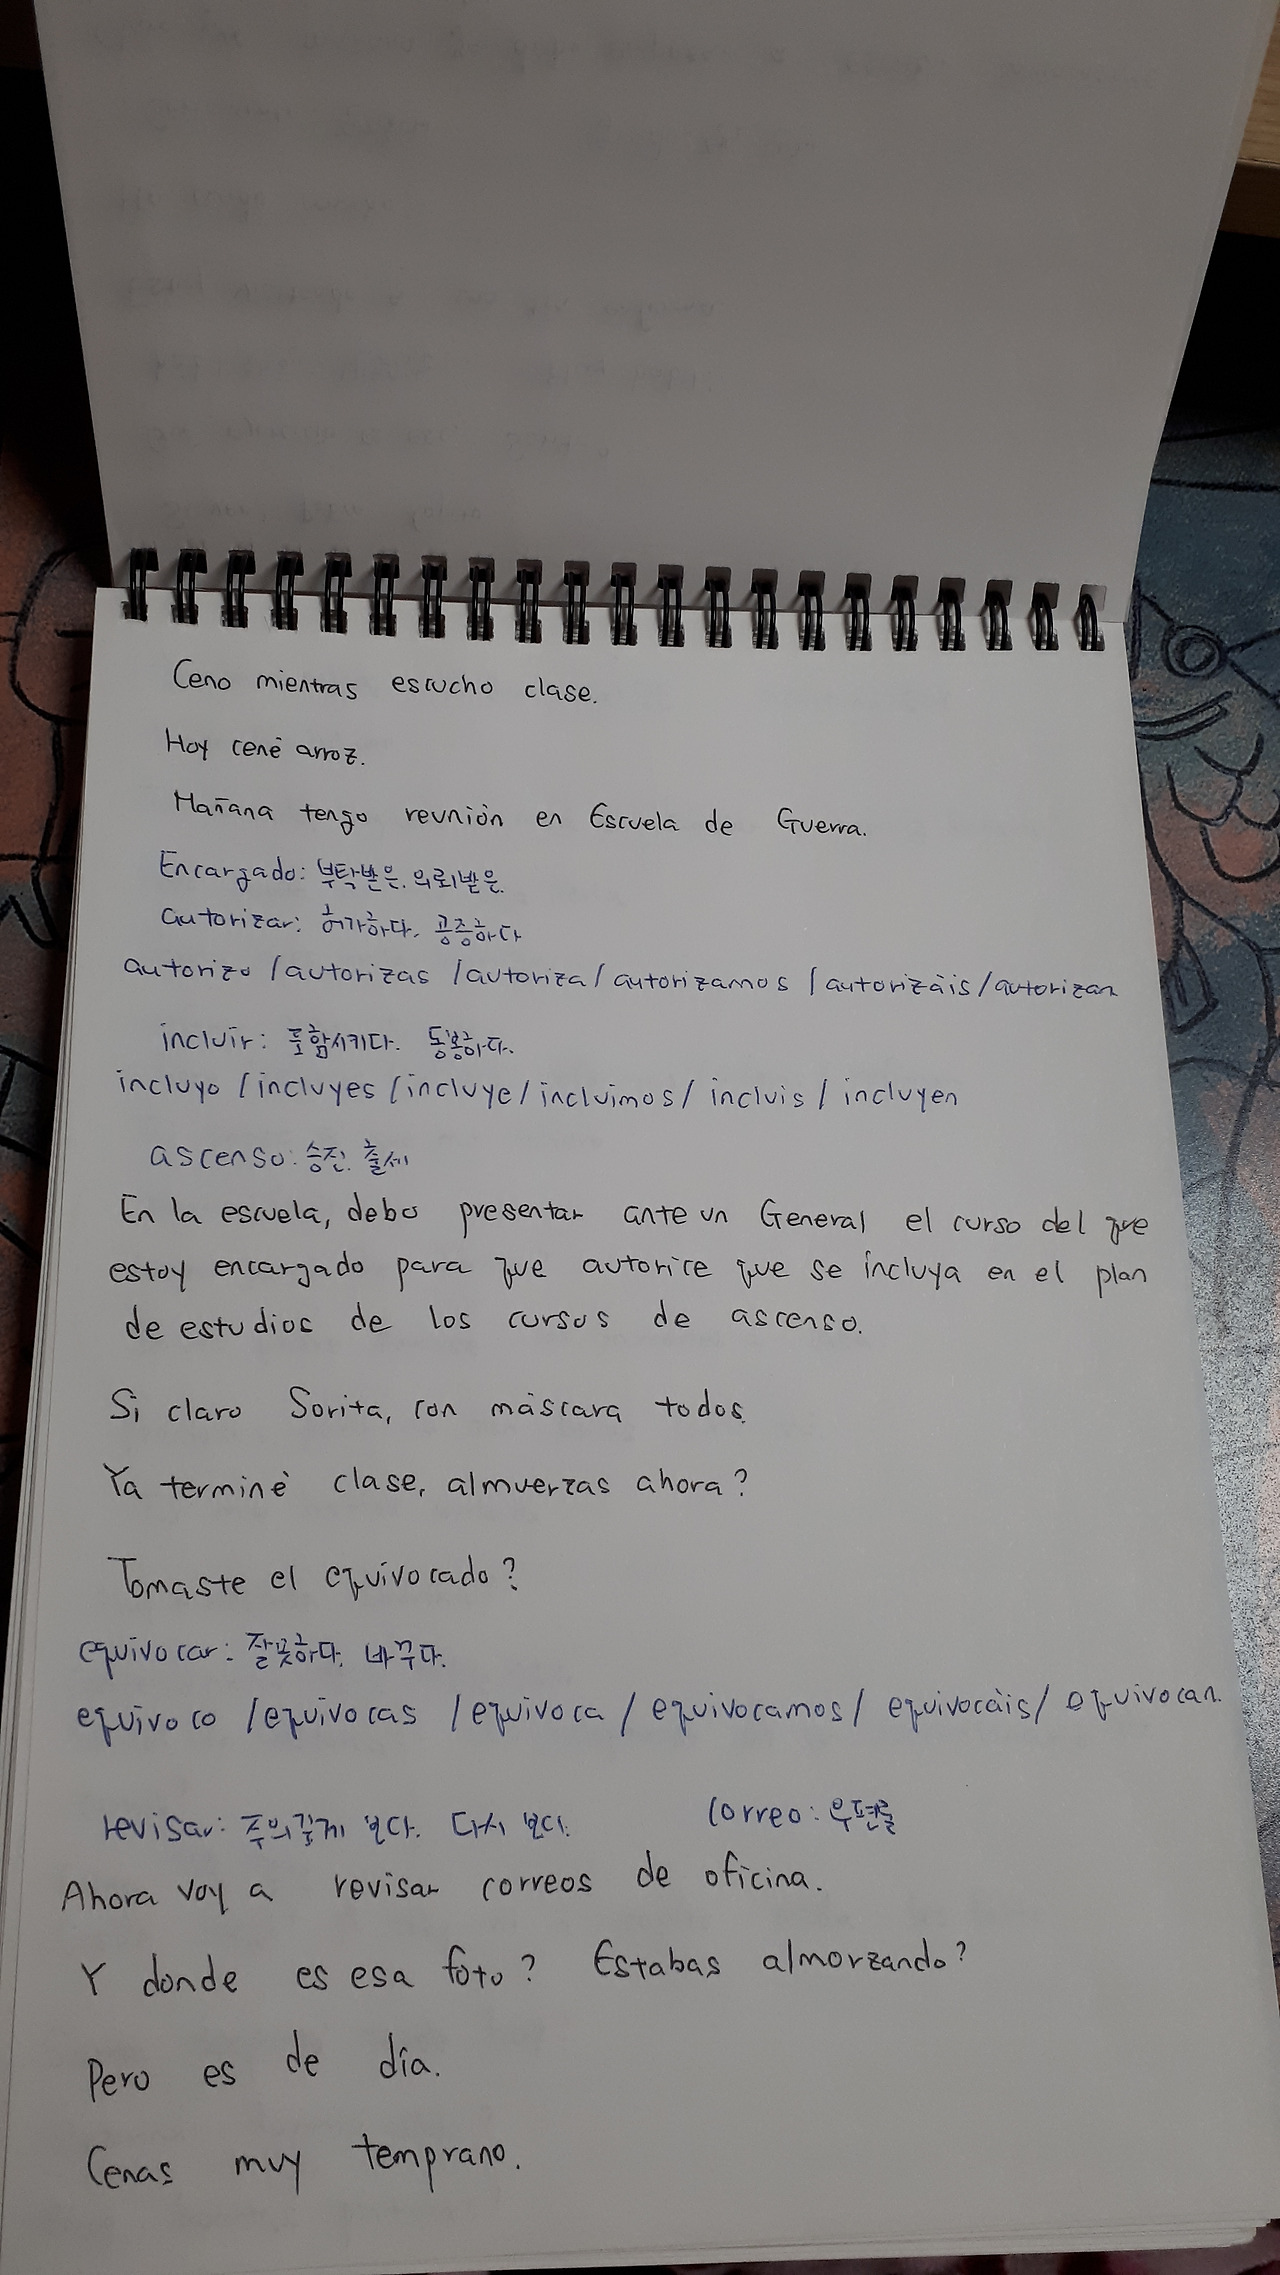 Ceno mientras escucho clase.
Hoy cené arroz.
Mañana tengo reunión en Escuela de Guerra.
Encargado: 부탁받은. 의뢰받은.
autorizar: 허가하다. 공증하다
autorizo / autorizas / autoriza / autorizamos / autorizáis / autorizan
incluir: 포함시키다. 동봉하다.
incluyo / incluyes / incluye / incluimos / incluis / incluyen
ascenso: 승진. 출세
En la escuela, debo presentar ante un General el curso del que
estoy encargado para que autorice que se incluya en el plan
de estudios de los cursos de ascenso.
Si claro Sorita, con máscara todos.
Ya terminé clase, almuerzas ahora?
Tomaste el equivocado?
equivocar: 잘못하다. 바꾸다.
equivoco / equivocas / equivoca / equivocamos / equivocáis / equivocan.
revisar: 주의깊게 보다. 다시 보다. correo: 우편물
Ahora voy a revisar correos de oficina.
Y donde es esa foto? Estabas almorzando?
Pero es de día.
Cenas muy temprano.